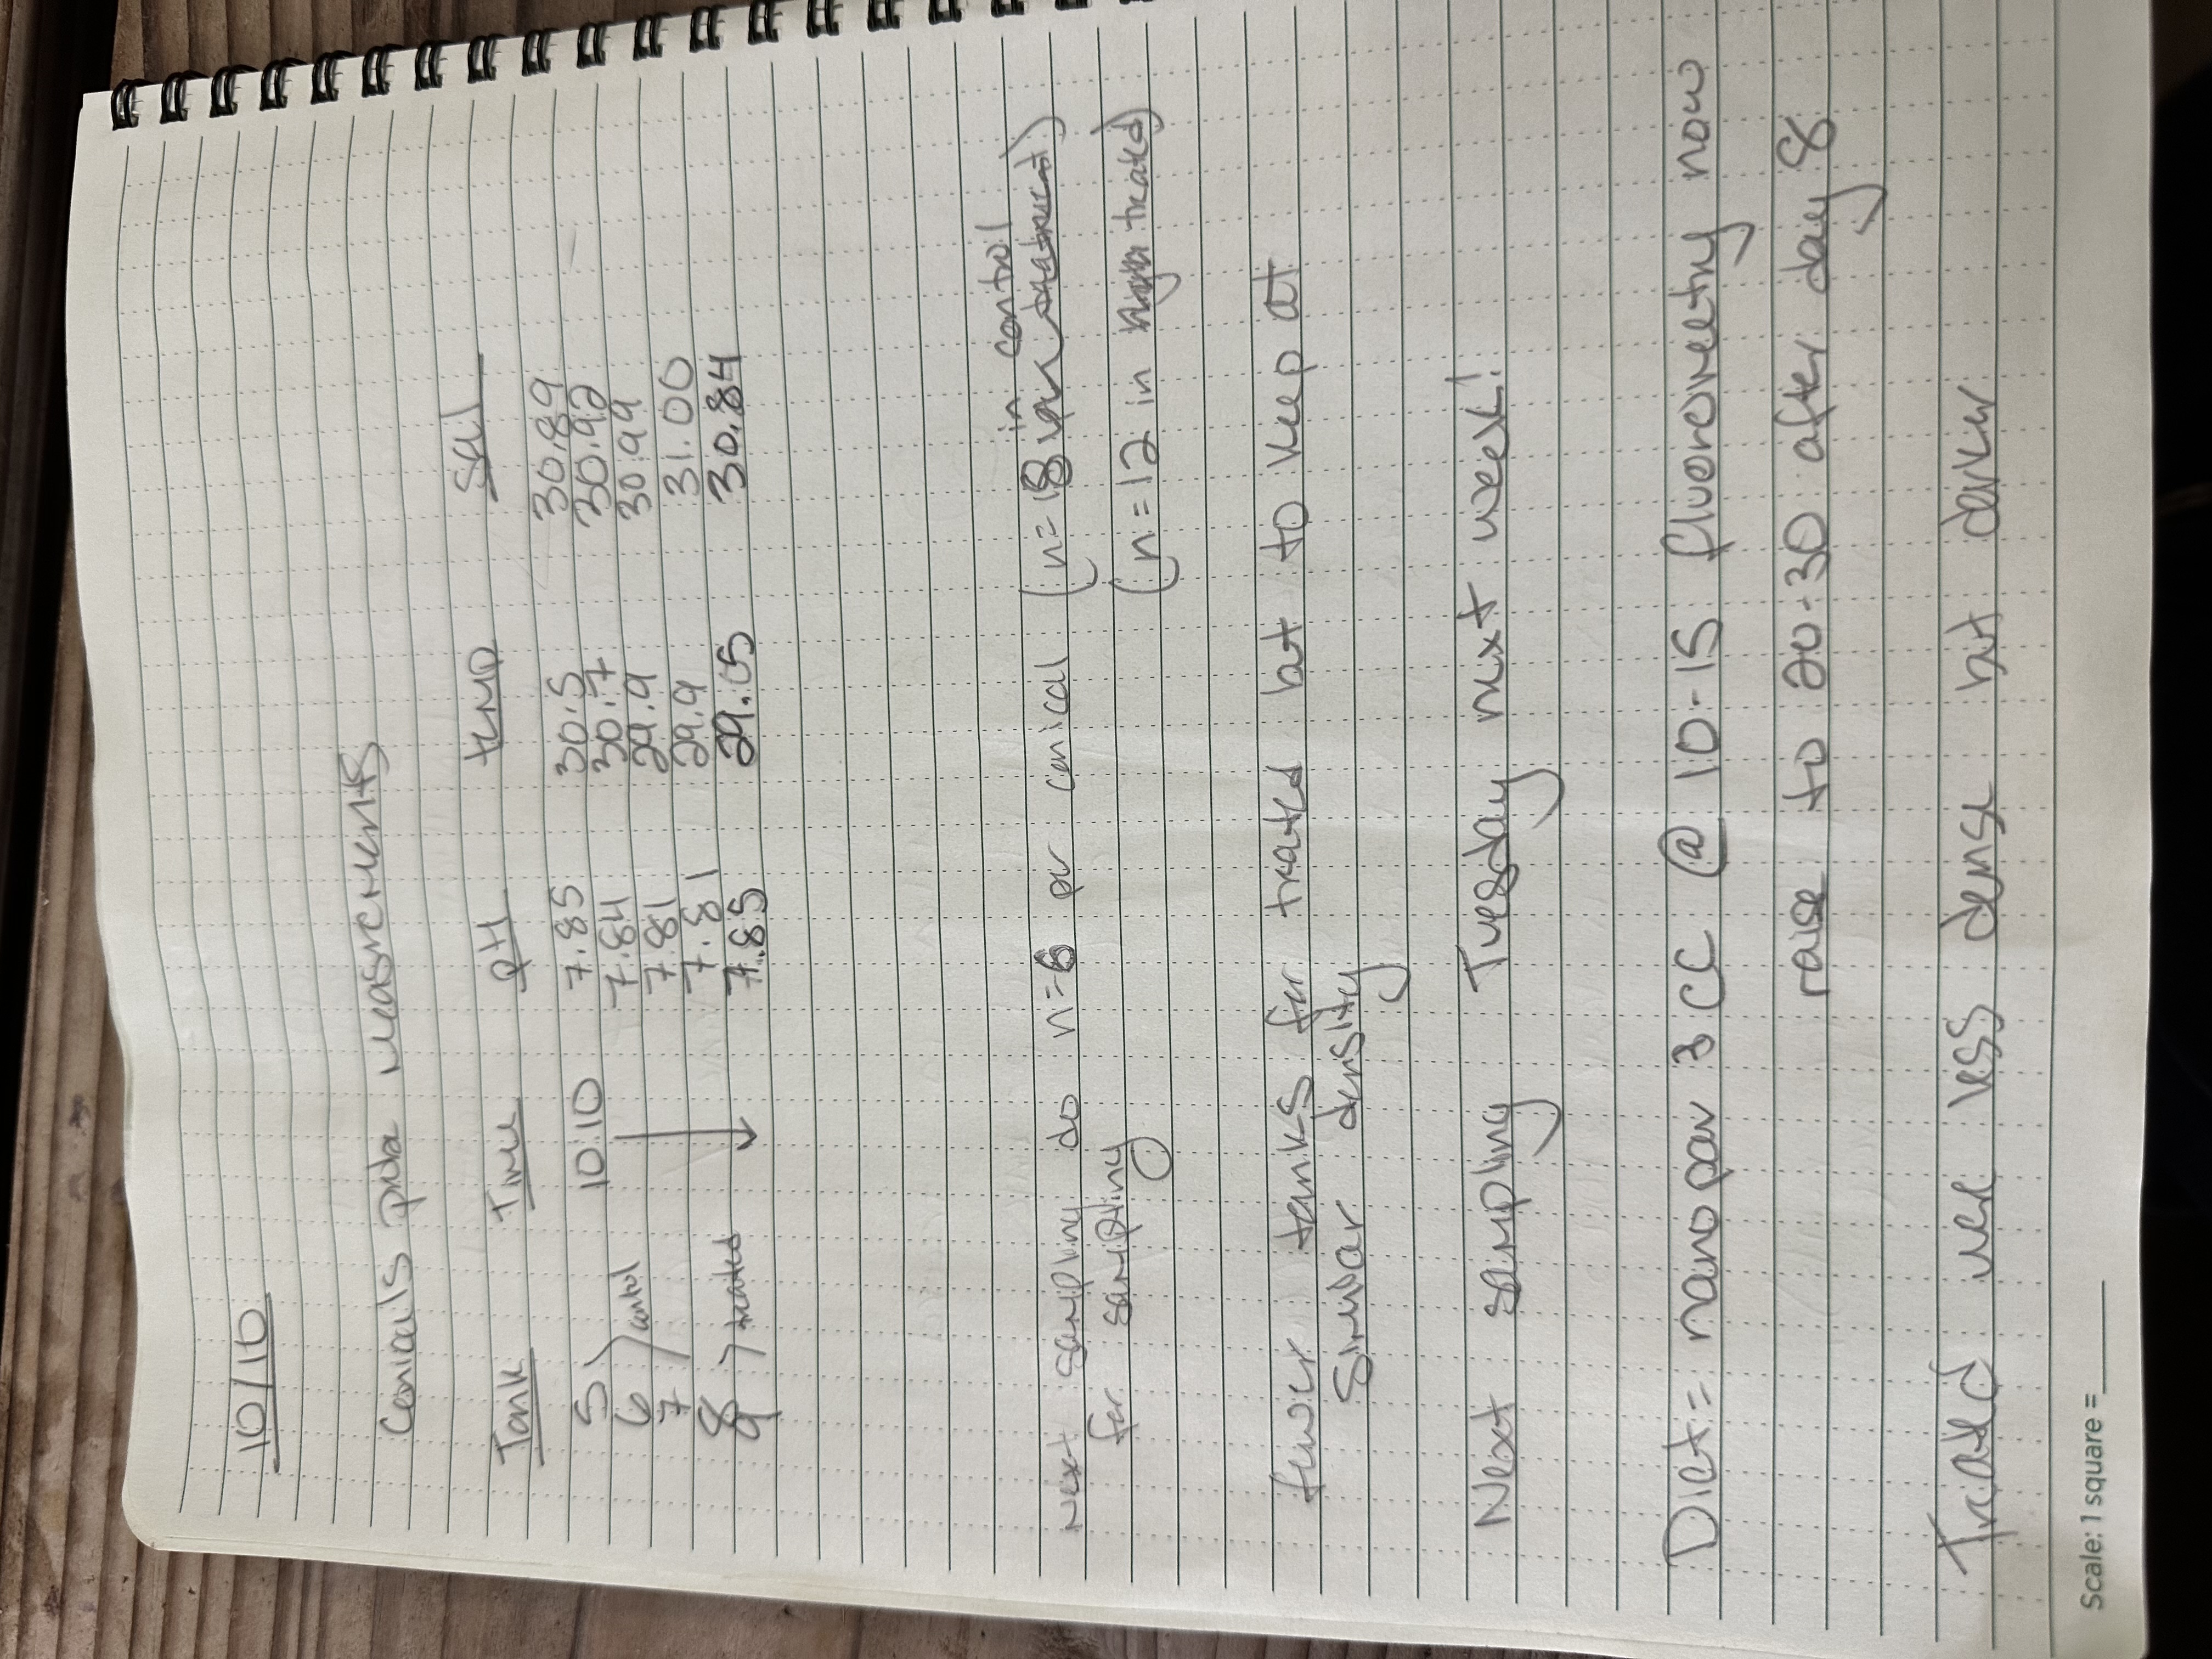 10/10
Conicals probe measurements
Tank Time pH temp sal
5 10:10 7.85 30.5 30.89
6 control 7.84 30.7 30.92
7 7.81 29.9 30.99
8 7.81 29.9 31.00
9 treated 7.85 29.05 30.84
in control
Next sampling do n=6 per conical (n=18 per treatment)
for sampling
(n=12 in treated)
fewer tanks for treated but to keep at
similar density
Next sampling Tuesday next week!
Diet= nanopav 3 CC @ 10-15 fluoromeetry now
raise to 20-30 after day 8
Treated were less dense but darker
Scale: 1 square =